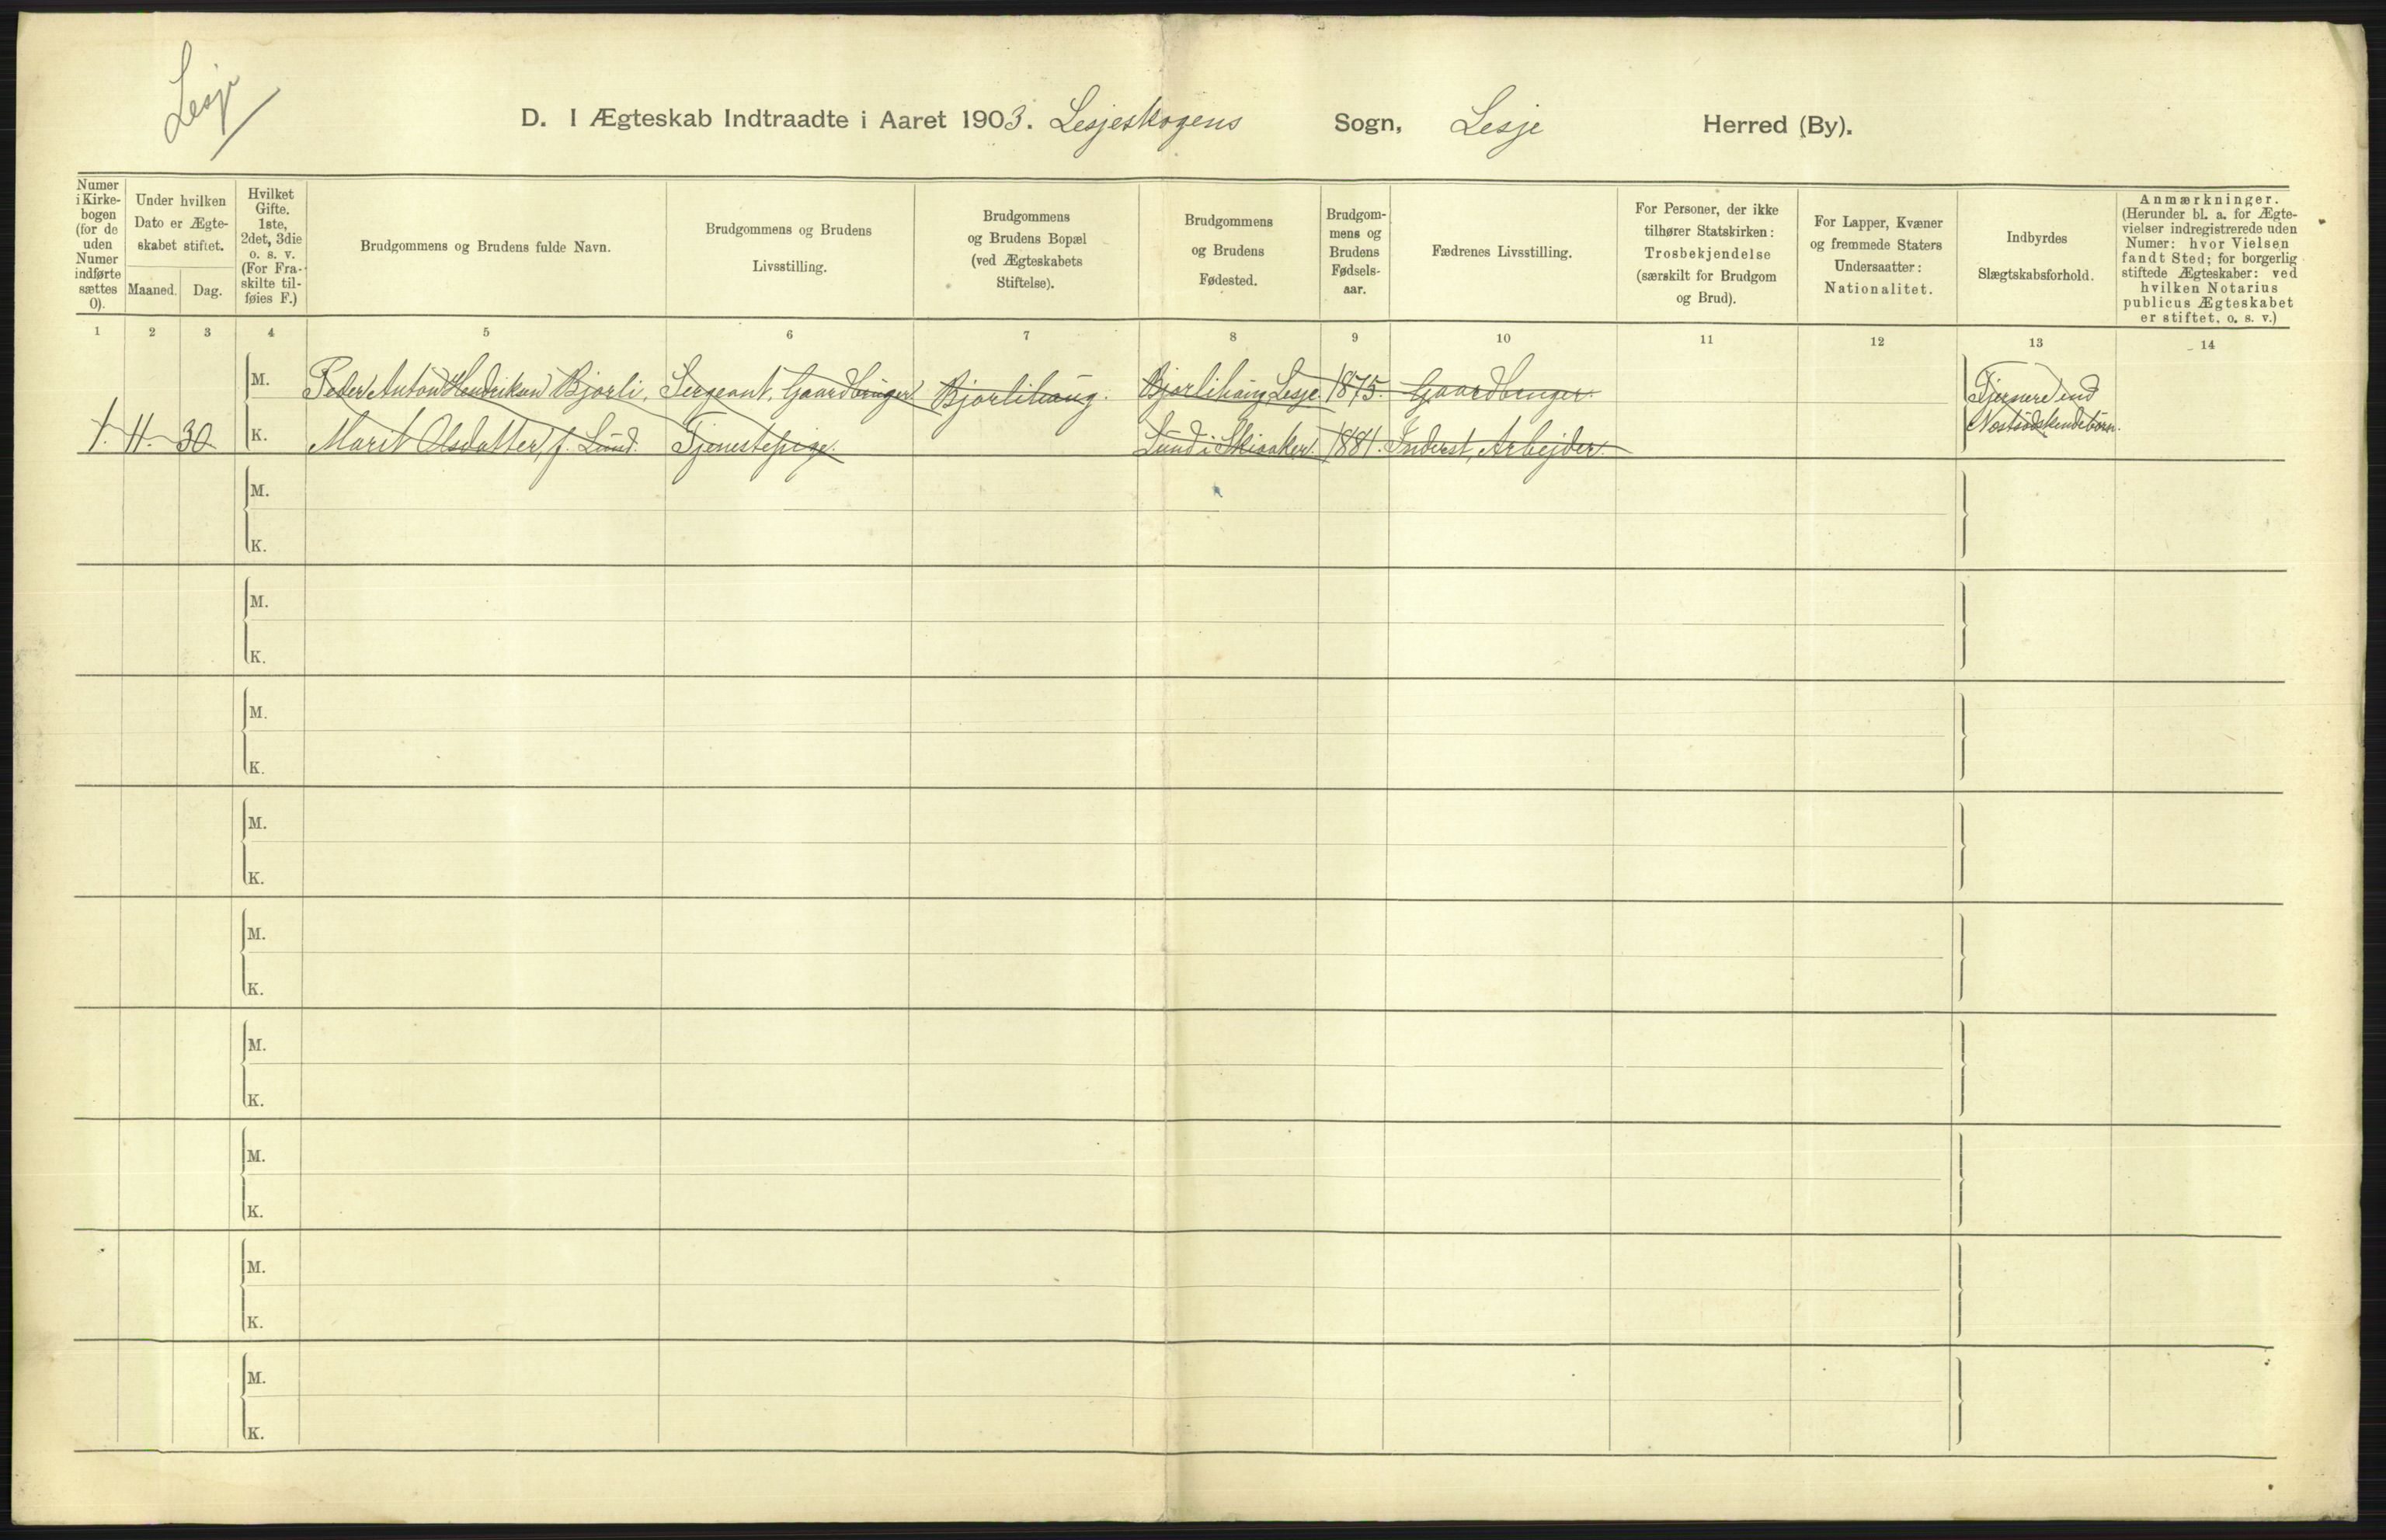 Lesje
D. I Ægteskab Indtraadte i Aaret 1903. Lesjeskogens Sogn, Lesje Herred (By).
Numer i Kirkebogen (for de uden Numer indførte sættes 0).
Under hvilken Dato er Ægteskabet stiftet.
Maaned. Dag.
Hvilket Gifte. 1ste, 2det, 3die o. s. v. (For Fraskilte tilføies F.)
Brudgommens og Brudens fulde Navn.
Brudgommens og Brudens Livsstilling.
Brudgommens og Brudens Bopæl (ved Ægteskabets Stiftelse).
Brudgommens og Brudens Fødested.
Brudgommens og Brudens Fødselsaar.
Fædrenes Livsstilling.
For Personer, der ikke tilhører Statskirken: Trosbekjendelse (særskilt for Brudgom og Brud).
For Lapper, Kvæner og fremmede Staters Undersaatter: Nationalitet.
Indbyrdes Slægtskabsforhold.
Anmærkninger. (Herunder bl. a. for Ægtevielser indregistrerede uden Numer: hvor Vielsen fandt Sted; for borgerlig stiftede Ægteskaber: ved hvilken Notarius publicus Ægteskabet er stiftet, o. s. v.)
1 2 3 4 5 6 7 8 9 10 11 12 13 14
M. Peder Anton Hendriksen Bjorli. Sergeant, Gaardbruger Bjorlihaug. Bjorlihaug, Lesje. 1875. Gaardbruger. Fjernere end
1. 11. 30 K. Marit Olsdatter, f. Lund. Tjenestepige. Lund i Skiaker. 1881. Inderst, Arbejder. Næstsødskendebørn.
M.
K.
M.
K.
M.
K.
M.
K.
M.
K.
M.
K.
M.
K.
M.
K.
M.
K.